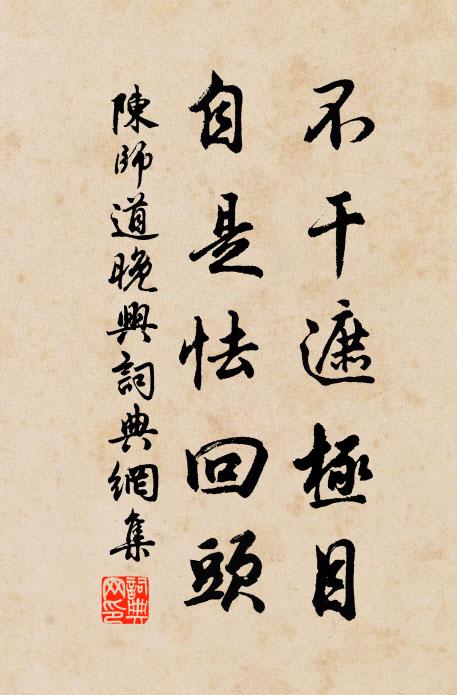 不干遮極目
自是怯回頭
陳師道晚興詞典網集
詞典
網印